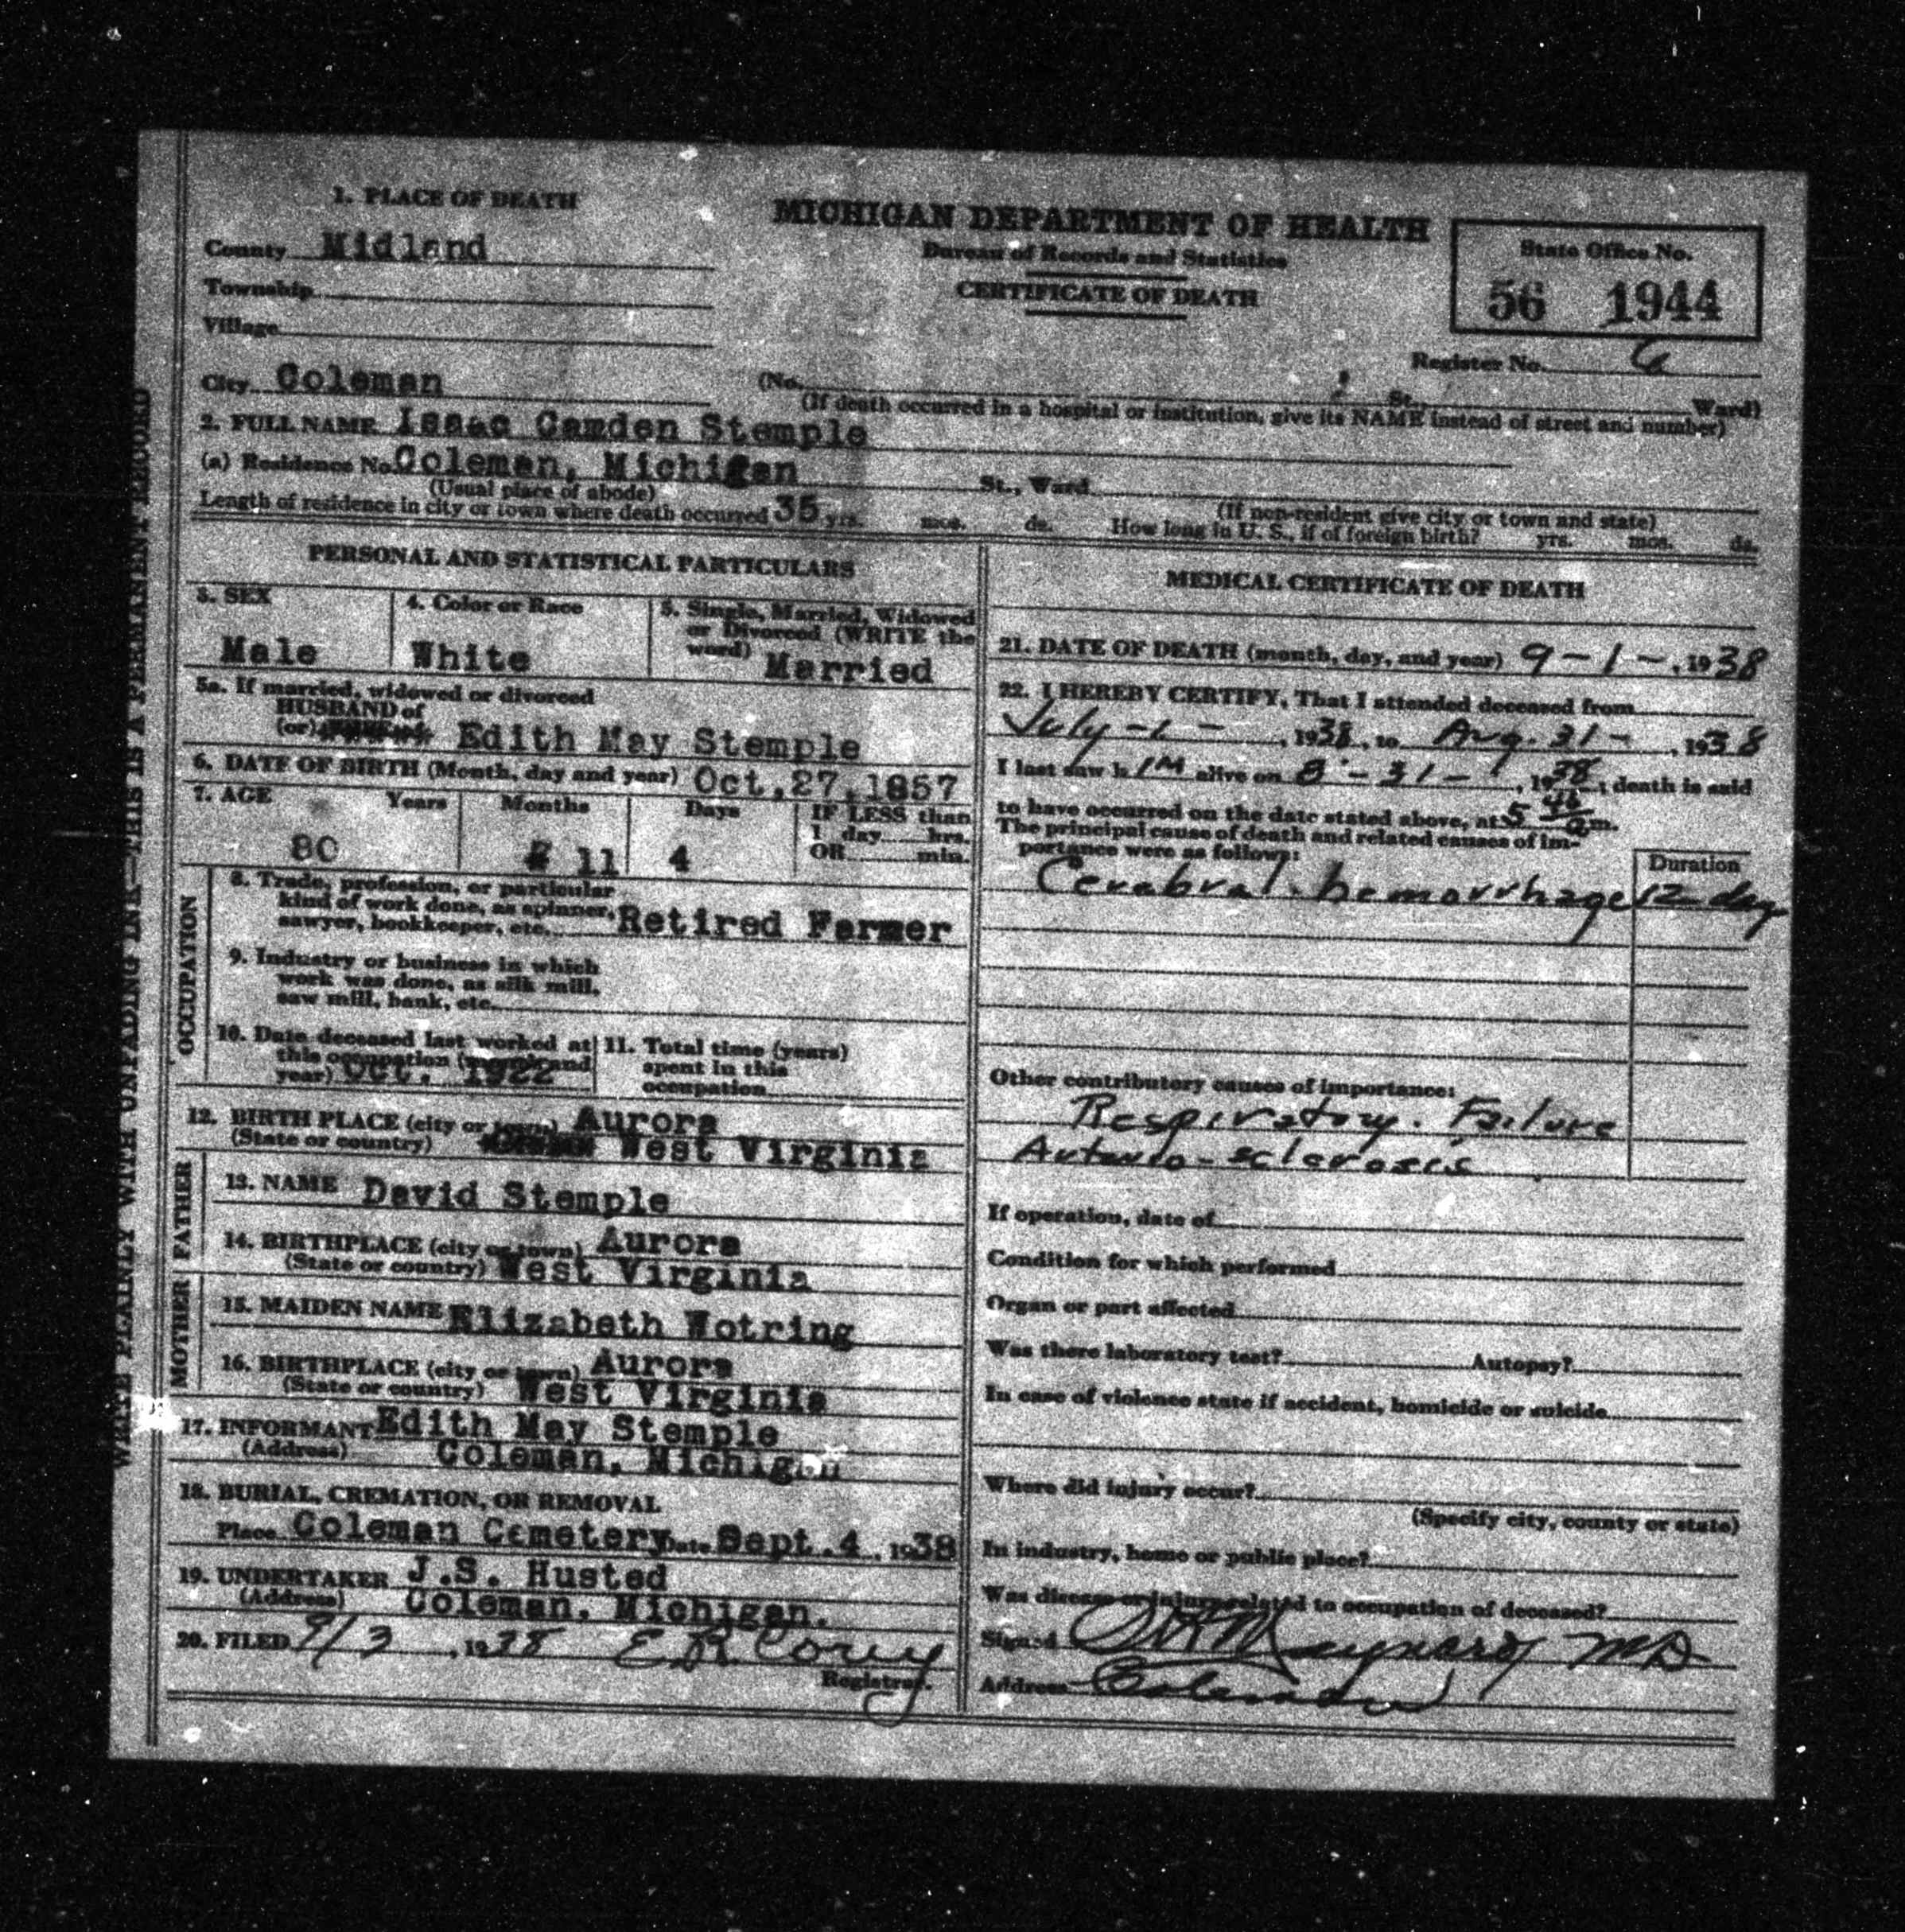 1. PLACE OF DEATH
County Midland
Township
Village
City Coleman
MICHIGAN DEPARTMENT OF HEALTH
Bureau of Records and Statistics
CERTIFICATE OF DEATH
State Office No.
56 1944
Register No. 6
(No. St., Ward)
(If death occurred in a hospital or institution, give its NAME instead of street and number)
2. FULL NAME Isaac Camden Stemple
(a) Residence No. Coleman, Michigan St., Ward
(Usual place of abode) (If non-resident give city or town and state)
Length of residence in city or town where death occurred 35 yrs. mos. ds. How long in U. S., if of foreign birth? yrs. mos. ds.
WRITE PLAINLY WITH UNFADING INK—THIS IS A PERMANENT RECORD
PERSONAL AND STATISTICAL PARTICULARS
3. SEX
Male
4. Color or Race
White
5. Single, Married, Widowed
or Divorced (WRITE the
word) Married
5a. If married, widowed or divorced
HUSBAND of
(or) Edith May Stemple
6. DATE OF BIRTH (Month, day and year) Oct. 27, 1857
7. AGE Years Months Days IF LESS than
1 day hrs.
OR min.
80 11 4
OCCUPATION
8. Trade, profession, or particular
kind of work done, as spinner,
sawyer, bookkeeper, etc. Retired Farmer
9. Industry or business in which
work was done, as silk mill,
saw mill, bank, etc.
10. Date deceased last worked at
this occupation (month and
year) Oct. 1922
11. Total time (years)
spent in this
occupation
12. BIRTH PLACE (city or town) Aurora
(State or country) West Virginia
FATHER
13. NAME David Stemple
14. BIRTHPLACE (city or town) Aurora
(State or country) West Virginia
MOTHER
15. MAIDEN NAME Elizabeth Wotring
16. BIRTHPLACE (city or town) Aurora
(State or country) West Virginia
17. INFORMANT Edith May Stemple
(Address) Coleman, Michigan
18. BURIAL, CREMATION, OR REMOVAL
Place Coleman Cemetery Date Sept. 4, 1938
19. UNDERTAKER J.S. Husted
(Address) Coleman, Michigan.
20. FILED 9/3, 1938 E R Corey
Registrar.
MEDICAL CERTIFICATE OF DEATH
21. DATE OF DEATH (month, day, and year) 9-1-, 1938
22. I HEREBY CERTIFY, That I attended deceased from
July-1-, 1938, to Aug. 31-, 1938
I last saw h im alive on 8-31-, 1938; death is said
to have occurred on the date stated above, at 5 46 a m.
The principal cause of death and related causes of im-
portance were as follows:
Duration
Cerebral. hemorrhage 12 day
Other contributory causes of importance:
Respiratory. Failure
Arterio-sclerosis
If operation, date of
Condition for which performed
Organ or part affected
Was there laboratory test? Autopsy?
In case of violence state if accident, homicide or suicide
Where did injury occur?
(Specify city, county or state)
In industry, home or public place?
Was disease or injury related to occupation of deceased?
Signed Maynard MD
Address Coleman